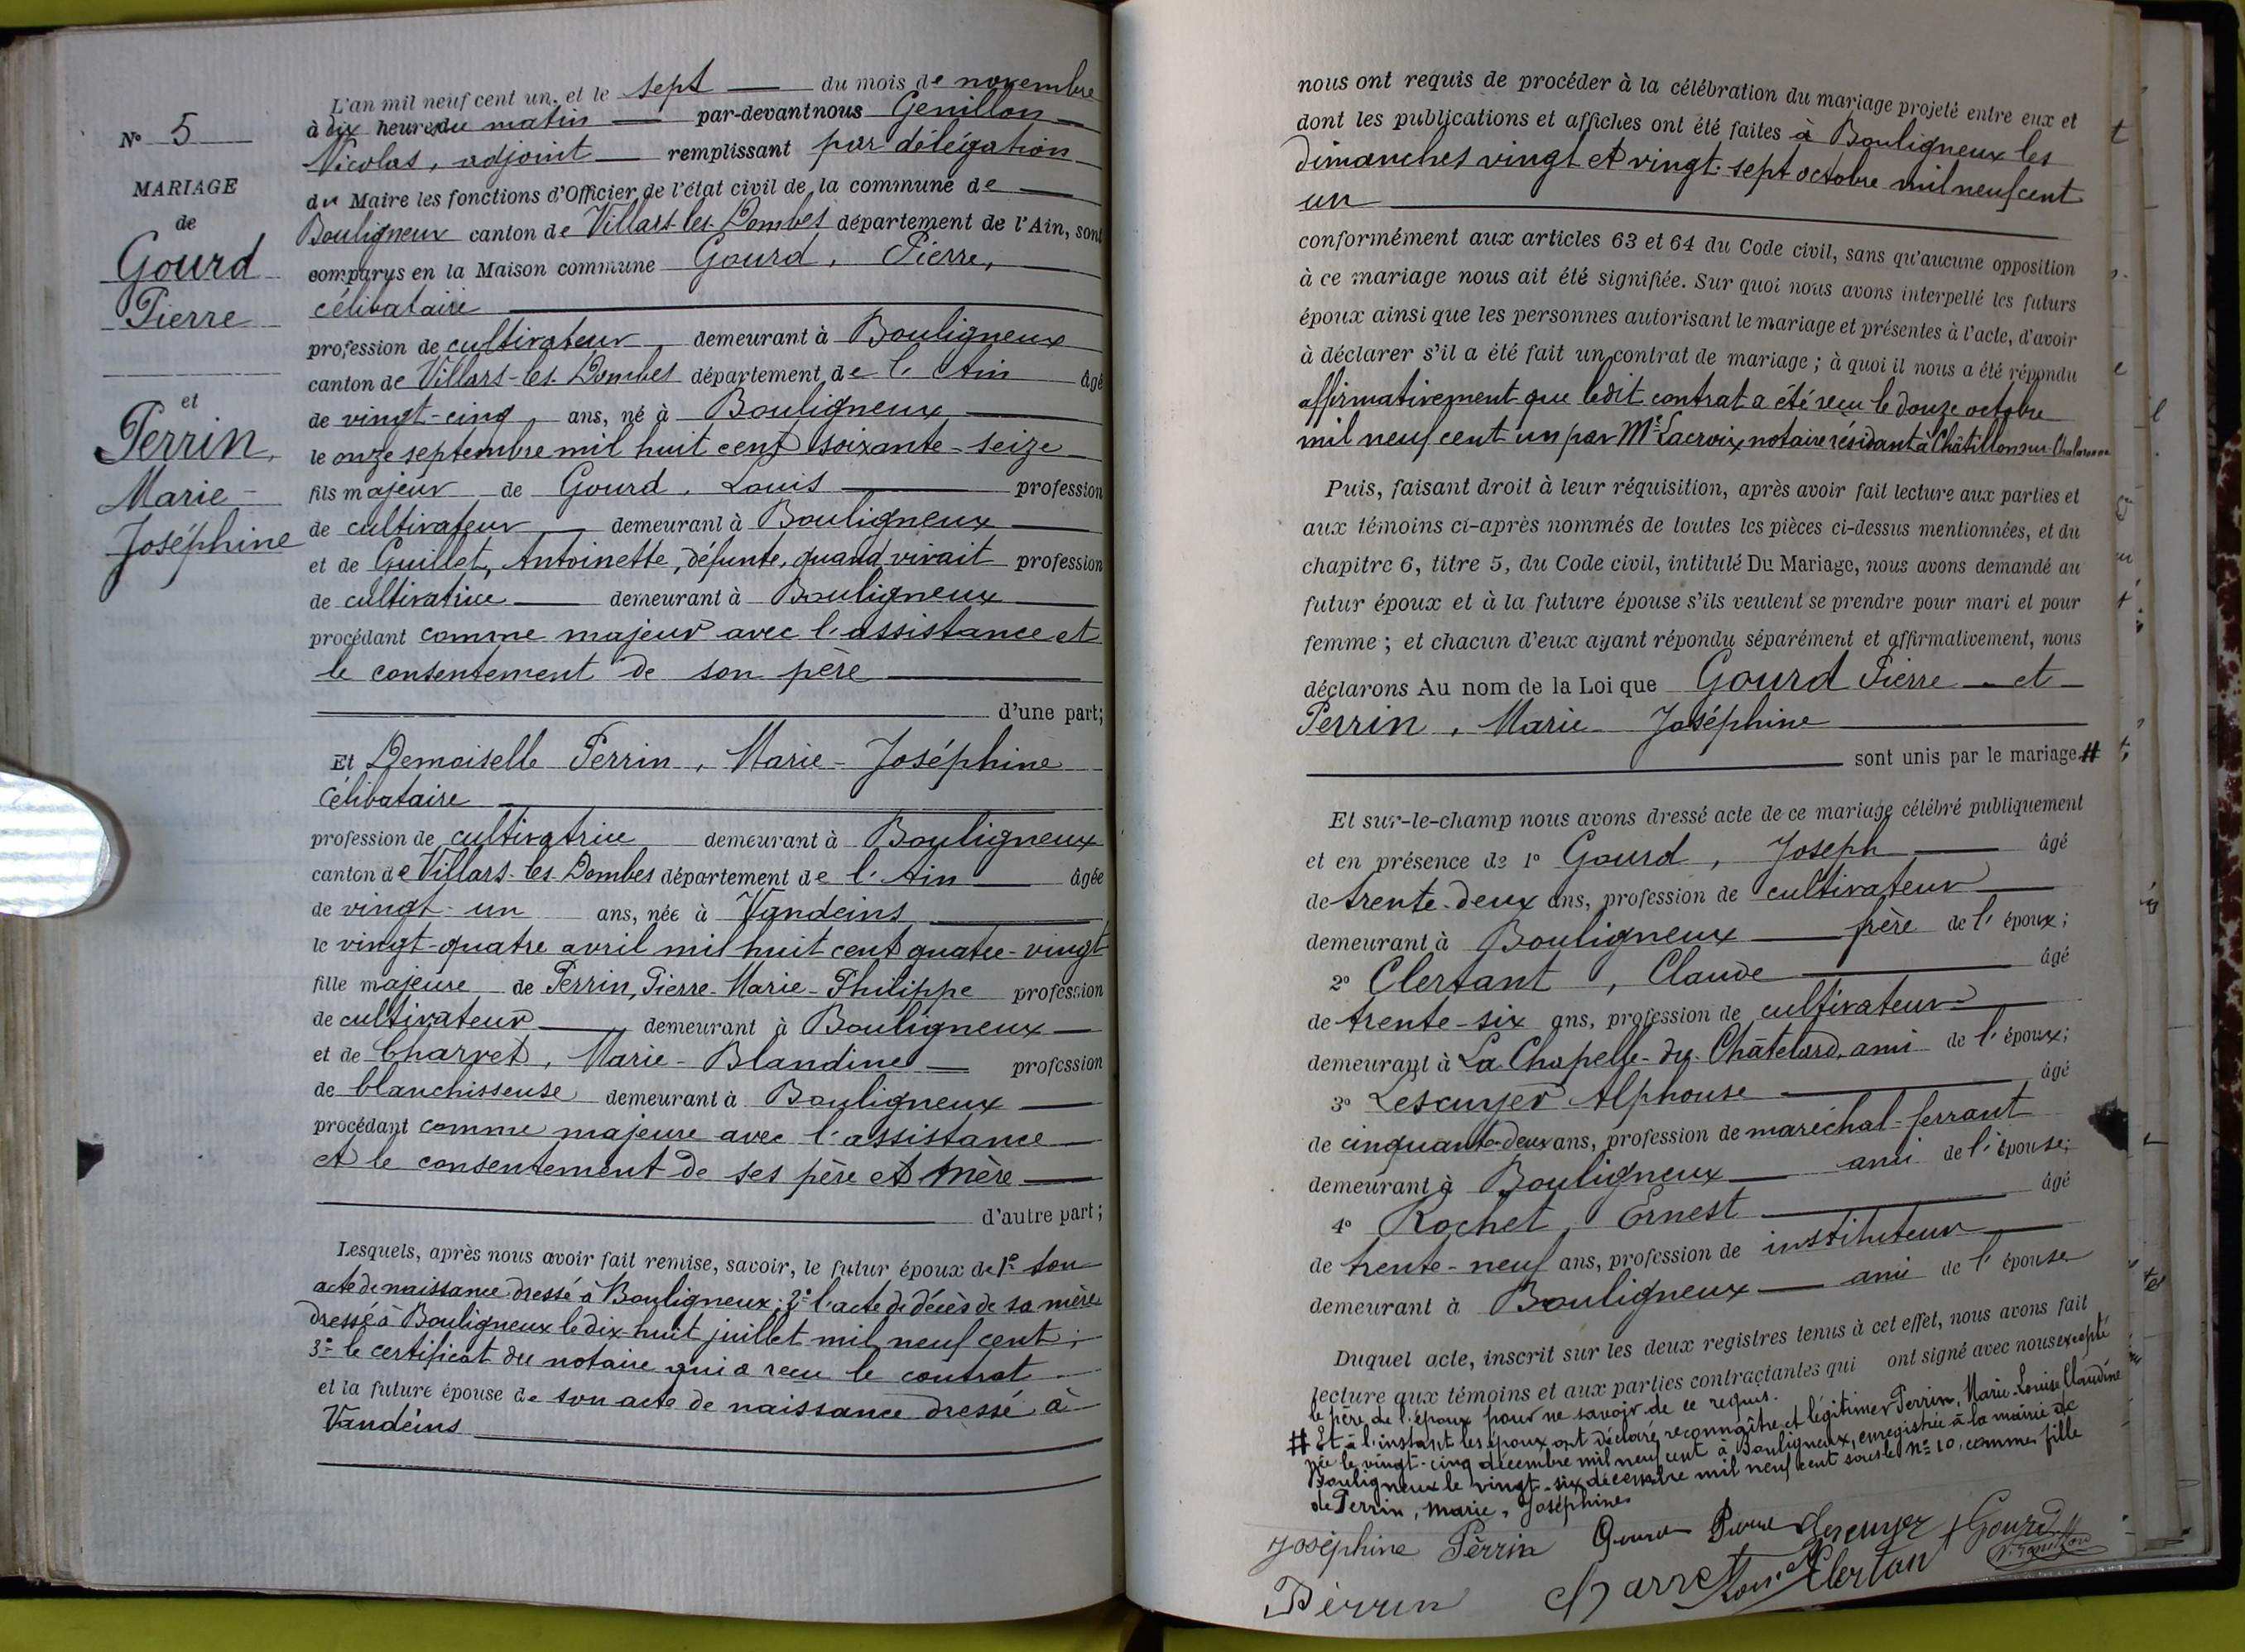 N° 5
MARIAGE
de
Gourd
Pierre
et
Perrin,
Marie-
Joséphine
L'an mil neuf cent un, et le sept du mois de novembre
à dix heures du matin par-devant nous Genillon
Nicolas, adjoint remplissant par délégation
du Maire les fonctions d'Officier de l'état civil de la commune de
Bouligneux canton de Villars-les-Dombes département de l'Ain, sont
comparus en la Maison commune Gourd, Pierre,
célibataire
profession de cultivateur, demeurant à Bouligneux
canton de Villars-les-Dombes département de l'Ain âgé
de vingt-cinq ans, né à Bouligneux
le onze septembre mil huit cent soixante-seize
fils majeur de Gourd, Louis profession
de cultivateur demeurant à Bouligneux
et de Guillet, Antoinette, défunte, quand vivait profession
de cultivatrice demeurant à Bouligneux
procédant comme majeur avec l'assistance et
le consentement de son père
d'une part;
Et Demoiselle Perrin, Marie-Joséphine
célibataire
profession de cultivatrice demeurant à Bouligneux
canton de Villars-les-Dombes département de l'Ain âgée
de vingt-un ans, née à Vandeins
le vingt-quatre avril mil huit cent quatre-vingt
fille majeure de Perrin, Pierre-Marie-Philippe profession
de cultivateur demeurant à Bouligneux
et de Charvet, Marie-Blandine profession
de blanchisseuse demeurant à Bouligneux
procédant comme majeure avec l'assistance
et le consentement de ses père et mère
d'autre part;
Lesquels, après nous avoir fait remise, savoir, le futur époux de 1° son
acte de naissance dressé à Bouligneux; 2° l'acte de décès de sa mère
dressé à Bouligneux le dix-huit juillet mil neuf cent;
3° le certificat du notaire qui a reçu le contrat
et la future épouse de son acte de naissance dressé à
Vandeins
nous ont requis de procéder à la célébration du mariage projeté entre eux et
dont les publications et affiches ont été faites à Bouligneux les
dimanches vingt et vingt-sept octobre mil neuf cent
un
conformément aux articles 63 et 64 du Code civil, sans qu'aucune opposition
à ce mariage nous ait été signifiée. Sur quoi nous avons interpellé les futurs
époux ainsi que les personnes autorisant le mariage et présentes à l'acte, d'avoir
à déclarer s'il a été fait un contrat de mariage; à quoi il nous a été répondu
affirmativement que ledit contrat a été reçu le douze octobre
mil neuf cent un par Me Lacroix notaire résidant à Châtillon sur Chalaronne
Puis, faisant droit à leur réquisition, après avoir fait lecture aux parties et
aux témoins ci-après nommés de toutes les pièces ci-dessus mentionnées, et du
chapitre 6, titre 5, du Code civil, intitulé Du Mariage, nous avons demandé au
futur époux et à la future épouse s'ils veulent se prendre pour mari et pour
femme; et chacun d'eux ayant répondu séparément et affirmativement, nous
déclarons Au nom de la Loi que Gourd Pierre et
Perrin, Marie Joséphine
sont unis par le mariage #
Et sur-le-champ nous avons dressé acte de ce mariage célébré publiquement
et en présence de 1° Gourd, Joseph âgé
de trente-deux ans, profession de cultivateur
demeurant à Bouligneux frère de l'époux;
2° Clertant, Claude âgé
de trente-six ans, profession de cultivateur
demeurant à La Chapelle-du-Châtelard, ami de l'époux;
3° Lescuyer Alphonse âgé
de cinquante-deux ans, profession de maréchal-ferrant
demeurant à Bouligneux ami de l'épouse;
4° Rochet, Ernest âgé
de trente-neuf ans, profession de instituteur
demeurant à Bouligneux ami de l'épouse
Duquel acte, inscrit sur les deux registres tenus à cet effet, nous avons fait
lecture aux témoins et aux parties contractantes qui ont signé avec nous excepté
le père de l'époux pour ne savoir de ce requis.
# Et à l'instant les époux ont déclaré reconnaître et légitimer Perrin, Marie-Louise Claudine
née le vingt-cinq décembre mil neuf cent à Bouligneux, enregistrée à la mairie de
Bouligneux le vingt-six décembre mil neuf cent sous le N° 10, comme fille
de Perrin, Marie, Joséphine
Joséphine Perrin Gourd Pierre Lescuyer J Gourd
Perrin Charvet Clertan